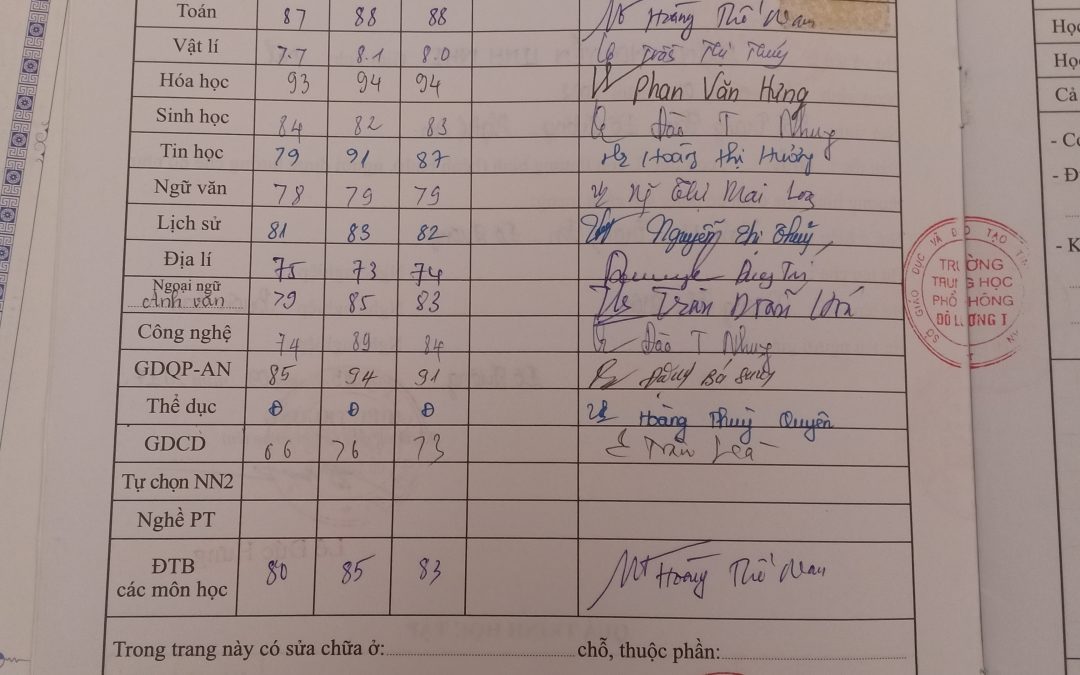 Toán 87 88 88 Hoàng Thế Nam
Vật lí 7.7 8.1 8.0 Trần Thị Thúy
Hóa học 93 94 94 Phan Văn Hưng
Sinh học 84 82 83 Đào T Nhung
Tin học 79 91 87 Hoàng Thị Hương
Ngữ văn 78 79 79 Thị Mai
Lịch sử 81 83 82 Nguyễn Thị Thuỷ
Địa lí 75 73 74
Ngoại ngữ
Anh văn 79 85 83 Trần
Công nghệ 74 89 84 Đào T Nhung
GDQP-AN 85 94 91 Bá
Thể dục Đ Đ Đ Hoàng Thuỳ Quyên
GDCD 66 76 73 Trần
Tự chọn NN2
Nghề PT
ĐTB
các môn học 80 85 83 Hoàng Thế Nam
Trong trang này có sửa chữa ở: chỗ, thuộc phần:
SỞ GIÁO DỤC VÀ ĐÀO TẠO
TRƯỜNG
TRUNG HỌC
PHỔ THÔNG
ĐÔ LƯƠNG I
Học
Học
Cả
- Có
- Đ
- K